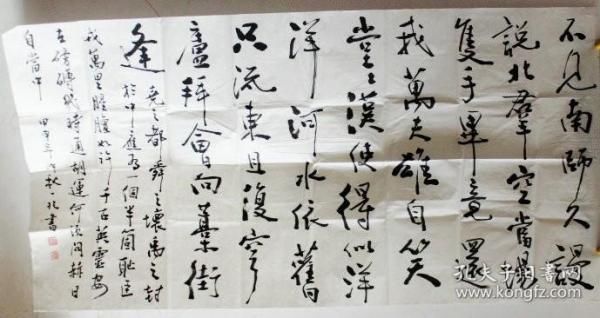 不見南師久謾
說北群空當場
隻手畢竟還
我萬夫雄自笑
堂〻漢使得似洋
洋河水依舊
只流東且復穹
廬拜會向藁街
逢
堯之都舜之壤禹之封
於中應有一個半箇恥臣
戎萬里腥膻如許千古英靈安
在磅礴幾時通胡運何須問赫日
自當中 甲午 秋 書
孔夫子旧书网
www.kongfz.com